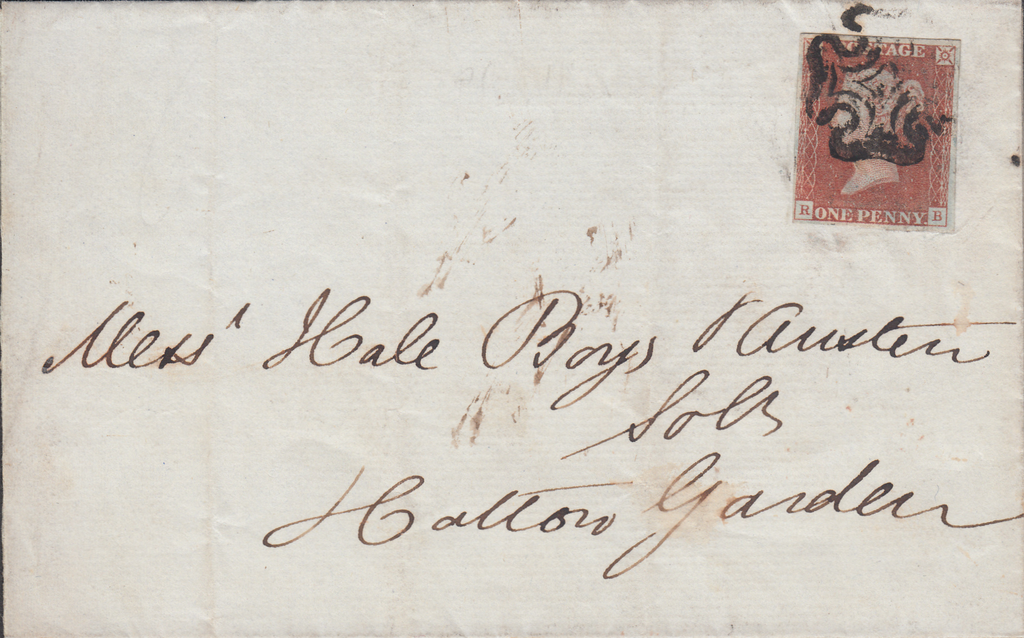 POSTAGE
R ONE PENNY. B
Mess^rs Hale Boys & Austen
Sol^rs
Hatton Garden